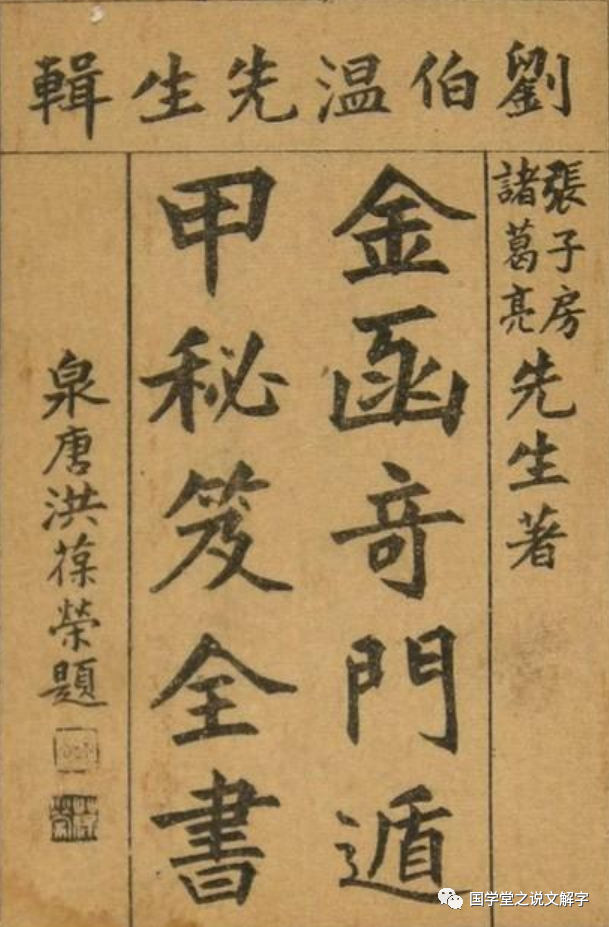 劉伯温先生輯
張子房
諸葛亮
先生著
金函奇門遁
甲秘笈全書
泉唐洪葆榮題
国学堂之说文解字